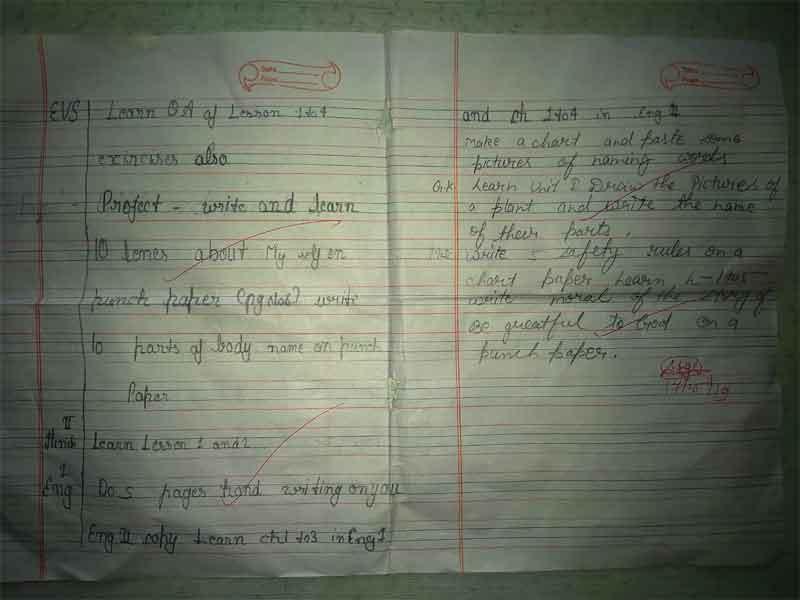 Date
EVS Learn QA of Lesson 1to4
exercises also
Project - write and learn
10 lines about My self on
punch paper (pg no 6) write
10 parts of body name on punch
Paper
II
Hindi Learn Lesson 1 and 2
I
Eng Do 5 pages hand writing on you
Eng II copy Learn ch1 to3 in Eng I
Date
and ch 1to4 in Eng II
make a chart and paste some
pictures of naming words
G.K Learn Unit I Draw the pictures of
a plant and write the name
of their parts.
write 5 safety rules on a
chart paper Learn L-1to5
write moral of the story of
Be greatful to God on a
punch paper.